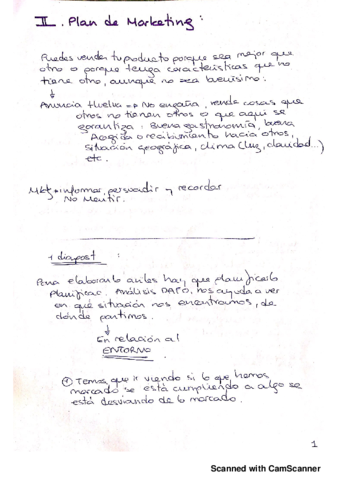 II. Plan de Marketing:
Puedes vender tu producto porque sea mejor que
otro o porque tenga características que no
tiene otro, aunque no sea buenísimo:
↓
Anuncia Huelva → No engaña, vende cosas que
otros no tienen otros o que aquí se
garantiza: Buena gastronomía, buena
Acogida o recibimiento hacia otros,
Situación geográfica, clima (luz, claridad...)
etc.
Mkt → informar, persuadir y recordar
No Mentir.
1 diapost:
Para elaborarlo antes hay que planificarlo
Planificac. Análisis DAFO, nos ayuda a ver
en qué situación nos encontramos, de
dónde partimos.
↓
En relación al
ENTORNO
Tenemos que ir viendo si lo que hemos
marcado se está cumpliendo o algo se
está desviando de lo marcado.
1
Scanned with CamScanner